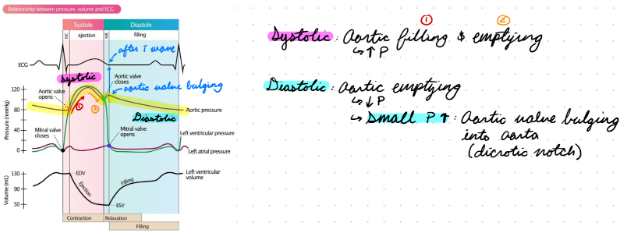 Relationship between pressure, volume and ECG
Systole
Diastole
IVC
ejection
IVR
filling
ECG
after T wave
Systolic
Aortic valve closes
aortic valve bulging
Aortic valve opens
120
100
80
60
40
20
0
Pressure (mmHg)
①
②
Aortic pressure
Diastolic
Mitral valve closes
Mitral valve opens
Left ventricular pressure
Left atrial pressure
130
90
50
Volume (mL)
EDV
Ejection
Filling
ESV
Left ventricular volume
Contraction
Relaxation
Filling
① ②
Systolic : Aortic filling & emptying
↳ ↑ P
Diastolic : Aortic emptying
↳ ↓ P
↳ Small P ↑ : Aortic valve bulging
into aorta
(dicrotic notch)